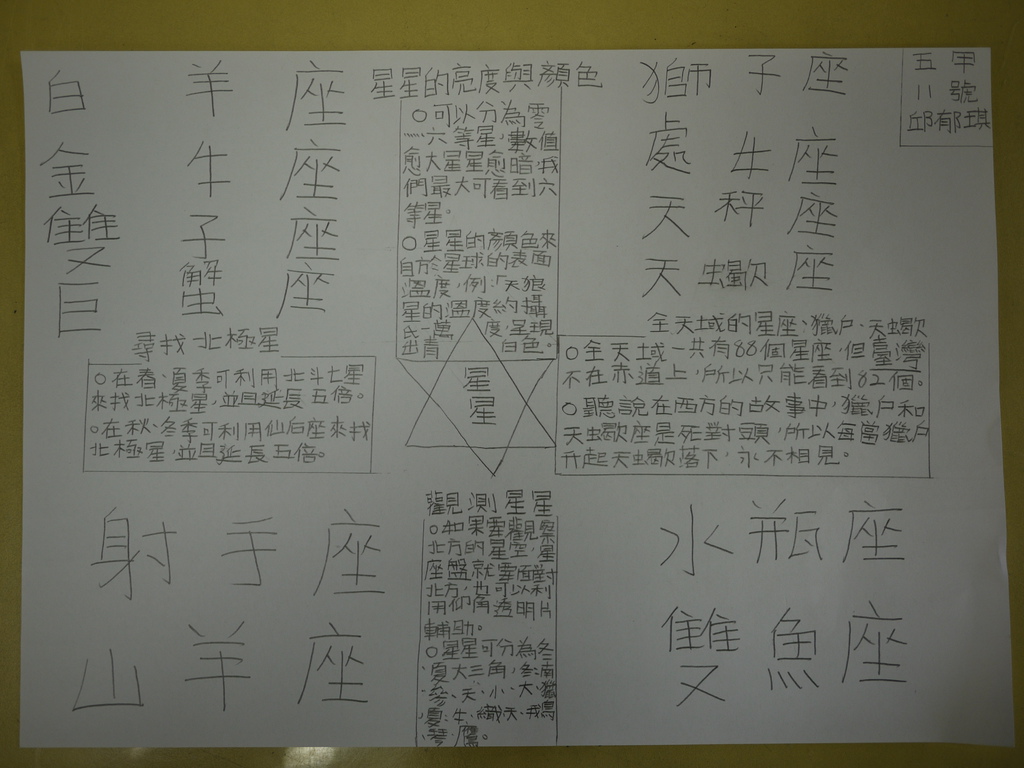 五甲
11號
邱郁琪
白羊座
金牛座
雙子座
巨蟹座
星星的亮度與顏色
○可以分為零
六等星,數值
愈大星星愈暗,我
們最大可看到六
等星。
○星星的顏色來
自於星球的表面
溫度,例:「天狼
星的溫度約攝
一萬度,呈現
出青白色。
獅子座
處女座
天秤座
天蠍座
尋找北極星
○在春、夏季可利用北斗七星
來找北極星,並且延長五倍。
○在秋、冬季可利用仙后座來找
北極星,並且延長五倍。
星
星
全天域的星座、獵戶、天蠍
○全天域一共有88個星座,但臺灣
不在赤道上,所以只能看到82個。
○聽說在西方的故事中,獵戶和
天蠍座是死對頭,所以每當獵戶
升起天蠍落下,永不相見。
觀測星星
○如果要觀察
北方的星空,星
座盤就要面對
北方,也可以利
用仰角透明片
輔助。
○星星可分為冬、
夏大三角,冬:南
麥、天、小、大、獵
夏:牛、織、天、我、鳥
琴、鷹。
射手座
山羊座
水瓶座
雙魚座